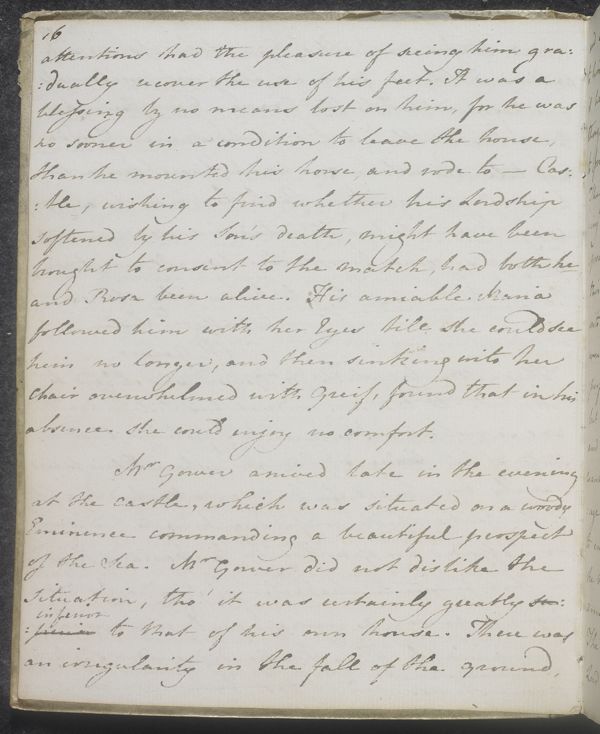 16
attentions had the pleasure of seeing him gra:
:dually recover the use of his feet. It was a
blessing by no means lost on him, for he was
no sooner in a condition to leave the house,
than he mounted his horse, and rode to — Cas:
:tle, wishing to find whether his Lordship
softened by his Son's death, might have been
brought to consent to the match, had both he
and Rosa been alive. His amiable Maria
followed him with her Eyes till she could see
him no longer, and then sinking into her
chair overwhelmed with Greif, found that in his
absence she could enjoy no comfort.
Mr Gower arrived late in the evening
at the castle, which was situated on a woody
Eminence commanding a beautiful prospect
of the Sea. Mr Gower did not dislike the
situation, tho' it was certainly greatly su:
inferior
:perior to that of his own house. There was
an irregularity in the fall of the ground,